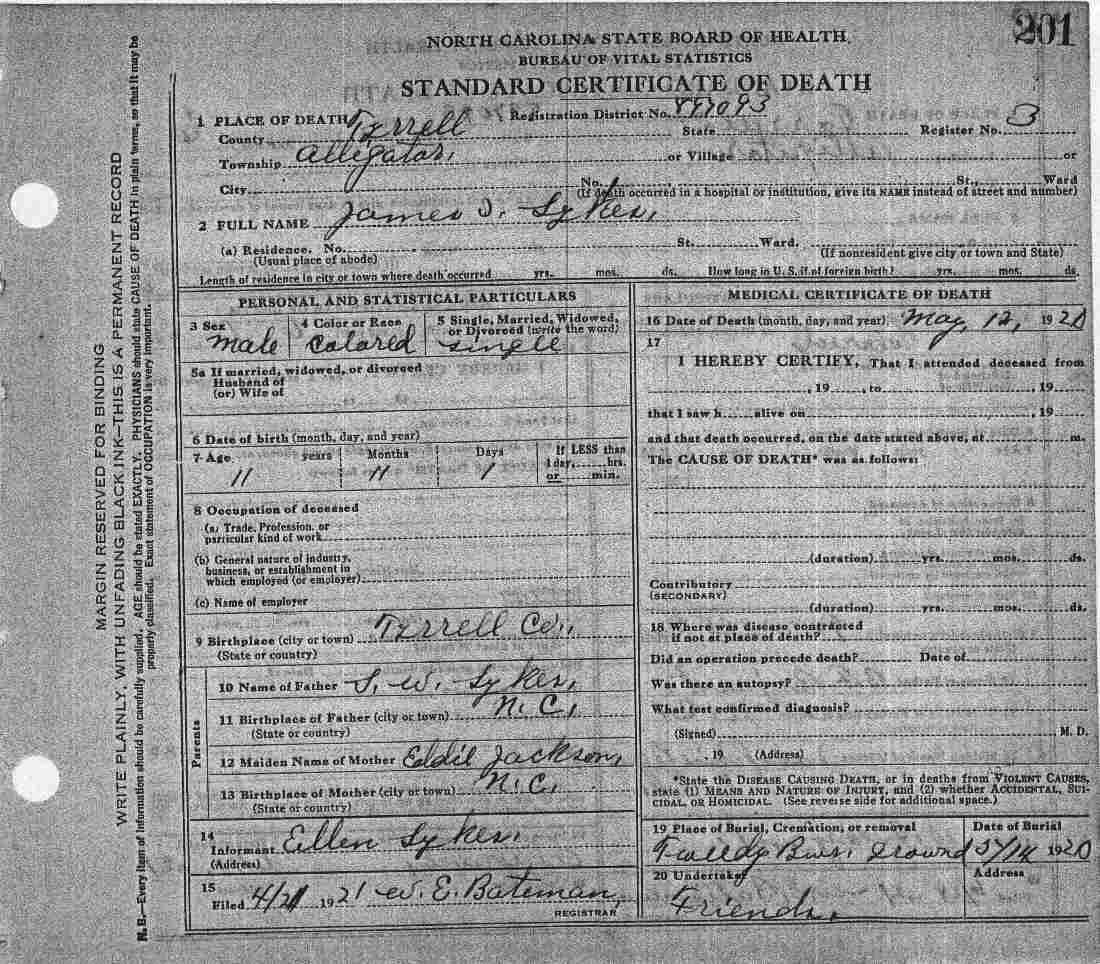 201
NORTH CAROLINA STATE BOARD OF HEALTH
BUREAU OF VITAL STATISTICS
STANDARD CERTIFICATE OF DEATH
1 PLACE OF DEATH Registration District No. 897093
County Tyrrell State Register No. 3
Township Alligator, or Village or
City No. St., Ward
(If death occurred in a hospital or institution, give its NAME instead of street and number)
2 FULL NAME James J. Sykes,
(a) Residence. No. St. Ward.
(Usual place of abode) (If nonresident give city or town and State)
Length of residence in city or town where death occurred yrs. mos. ds. How long in U. S., if of foreign birth? yrs. mos. ds.
PERSONAL AND STATISTICAL PARTICULARS
3 Sex 4 Color or Race 5 Single, Married, Widowed, or Divorced (write the word)
male colored single
5a If married, widowed, or divorced
Husband of
(or) Wife of
6 Date of birth (month, day, and year)
7 Age years Months Days If LESS than
1 day, hrs.
11 11 1 or min.
8 Occupation of deceased
(a) Trade, Profession, or
particular kind of work
(b) General nature of industry,
business, or establishment in
which employed (or employer)
(c) Name of employer
9 Birthplace (city or town) Tyrrell Co.,
(State or country)
Parents
10 Name of Father S. W. Sykes,
11 Birthplace of Father (city or town) N. C.,
(State or country)
12 Maiden Name of Mother Eddie Jackson,
13 Birthplace of Mother (city or town) N. C.,
(State or country)
14
Informant Ellen Sykes.
(Address)
15
Filed 4/21 1921 W. E. Bateman,
REGISTRAR
MEDICAL CERTIFICATE OF DEATH
16 Date of Death (month, day, and year) May 12, 1920
17
I HEREBY CERTIFY, That I attended deceased from
, 19 , to , 19
that I saw h alive on , 19
and that death occurred, on the date stated above, at m.
The CAUSE OF DEATH* was as follows:
(duration) yrs. mos. ds.
Contributory
(SECONDARY)
(duration) yrs. mos. ds.
18 Where was disease contracted
if not at place of death?
Did an operation precede death? Date of
Was there an autopsy?
What test confirmed diagnosis?
(Signed) M. D.
, 19 (Address)
*State the DISEASE CAUSING DEATH, or in deaths from VIOLENT CAUSES,
state (1) MEANS AND NATURE OF INJURY, and (2) whether ACCIDENTAL, SUI-
CIDAL, OR HOMICIDAL. (See reverse side for additional space.)
19 Place of Burial, Cremation, or removal Date of Burial
Ground 5/14 1920
20 Undertaker Address
Friends,
MARGIN RESERVED FOR BINDING
WRITE PLAINLY, WITH UNFADING BLACK INK—THIS IS A PERMANENT RECORD
N. B.—Every item of information should be carefully supplied. AGE should be stated EXACTLY. PHYSICIANS should state CAUSE OF DEATH in plain terms, so that it may be
properly classified. Exact statement of OCCUPATION is very important.